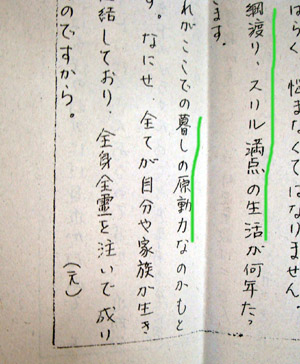 ばらく、悩まなくてはなりません。
綱渡り、スリル満点の生活が何年たっ
ます。
れがここでの暮しの原動力なのかもと
す。なにせ、全てが自分や家族が生き
結しており、全身全霊を注いで成り
のですから。
（元）